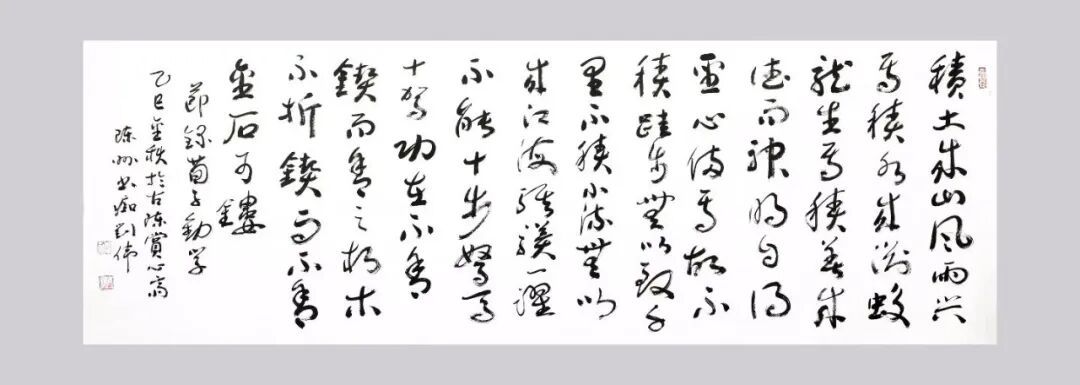 積土成山风雨兴
焉積水成渊蛟
龙生焉積善成
德而神明自得
圣心備焉故不
積跬步無以致千
里不積小流無以
成江海骐骥一躍
不能十步驽马
十驾功在不舍
鍥而舍之朽木
不折鍥而不舍
金石可鏤
節錄荀子勸学
乙巳金秋於古陈賞心斋
陈州书痴刘伟